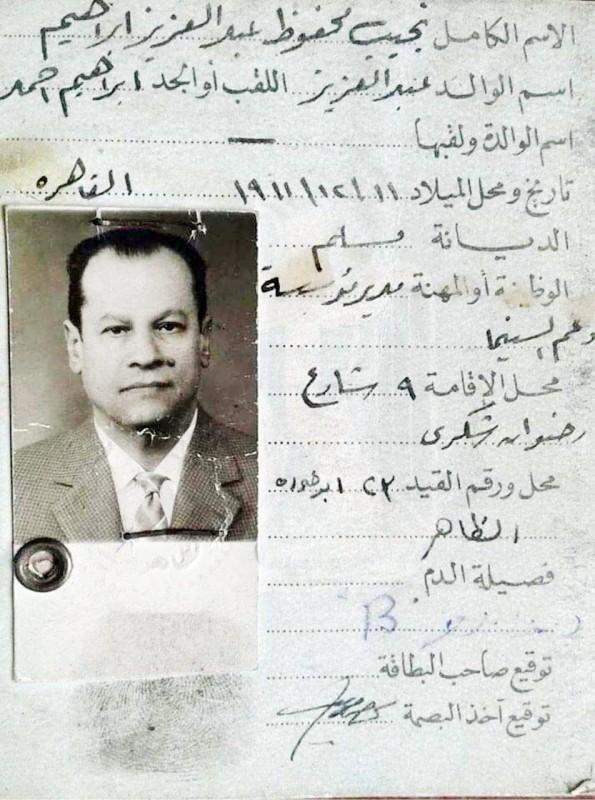 الاسم الكامل نجيب محفوظ عبد العزيز ابراهيم
اسم الوالد عبد العزيز اللقب أو الجد ابراهيم احمد
اسم الوالدة ولقبها —
تاريخ ومحل الميلاد ١١/١٢/١٩١١ القاهره
الديانة مسلم
الوظيفة أو المهنة مدير مؤسسة
دعم السينما
محل الإقامة ٩ شارع
رضوان شكرى
محل ورقم القيد ٢٢
الظاهر
فصيلة الدم
B
توقيع صاحب البطاقة
توقيع آخذ البصمة